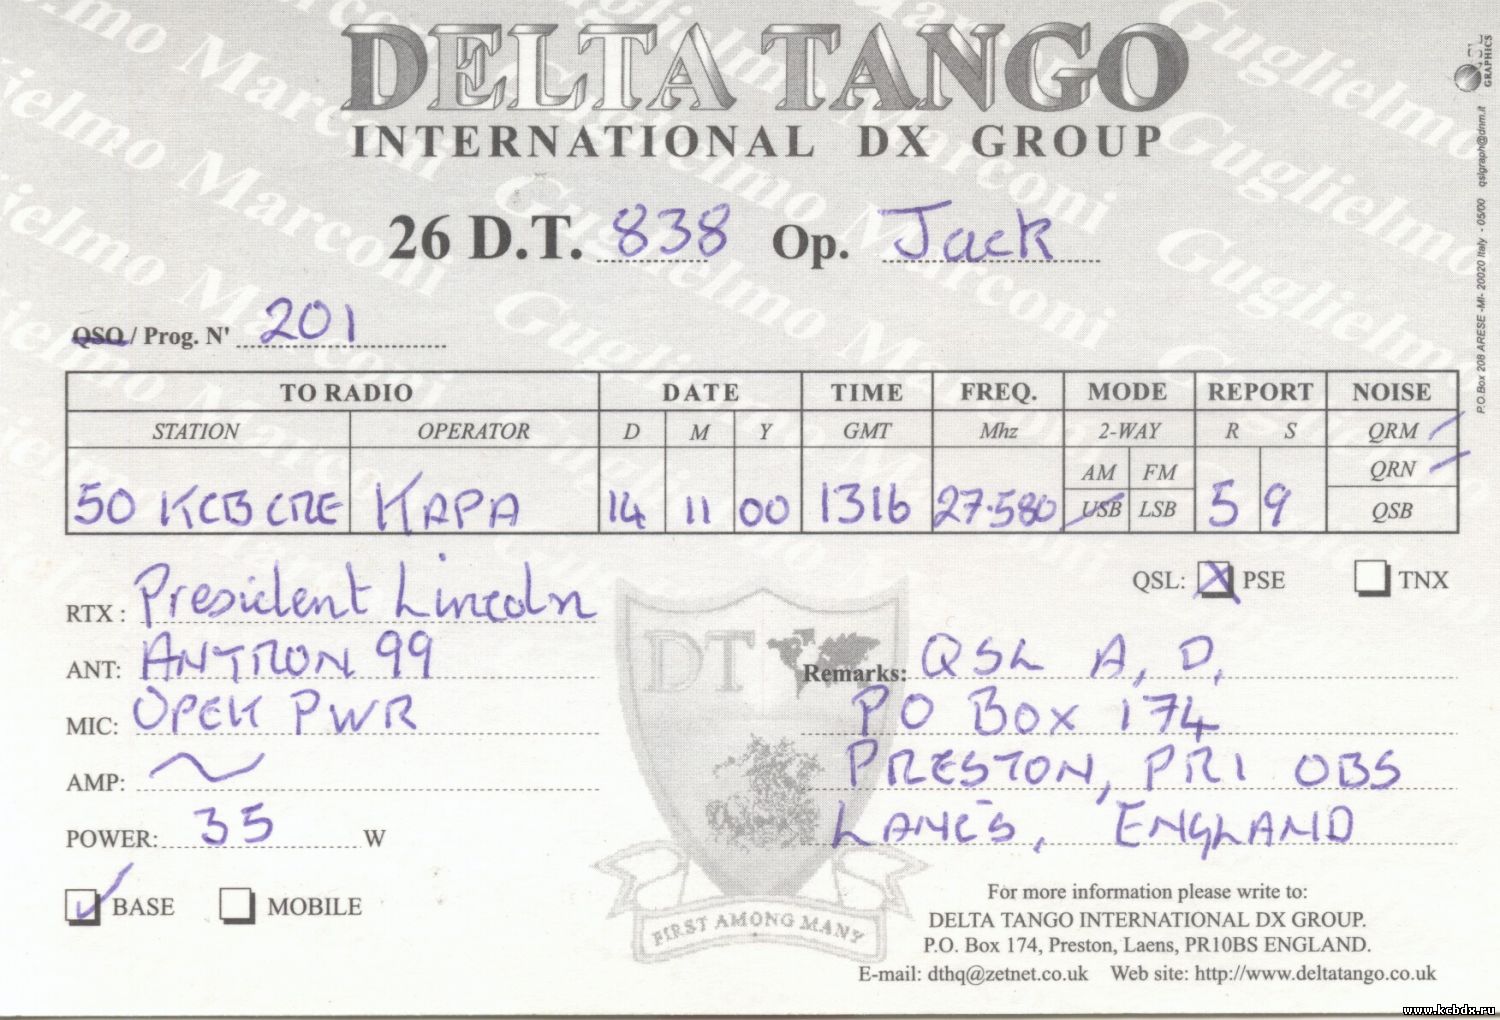 DELTA TANGO
INTERNATIONAL DX GROUP
26 D.T. 838 Op. Jack
QSO / Prog. N' 201
TO RADIO DATE TIME FREQ. MODE REPORT NOISE
STATION OPERATOR D M Y GMT Mhz 2-WAY R S QRM
AM FM QRN
50 KCB CRE KAPA 14 11 00 1316 27.580 USB LSB 5 9 QSB
QSL: PSE TNX
RTX : President Lincoln
ANT: ANTRON 99
MIC: OPEK PWR
AMP:
POWER: 35 W
BASE MOBILE
Remarks: QSL A, D,
PO Box 174
PRESTON, PR1 OBS
LANCS, ENGLAND
DT
FIRST AMONG MANY
For more information please write to:
DELTA TANGO INTERNATIONAL DX GROUP.
P.O. Box 174, Preston, Laens, PR10BS ENGLAND.
E-mail: dthq@zetnet.co.uk Web site: http://www.deltatango.co.uk
P.O.Box 208 ARESE -MI- 20020 Italy - 05/00 qslgraph@dnm.it
GRAPHICS
Guglielmo Marconi
www.kcbdx.ru